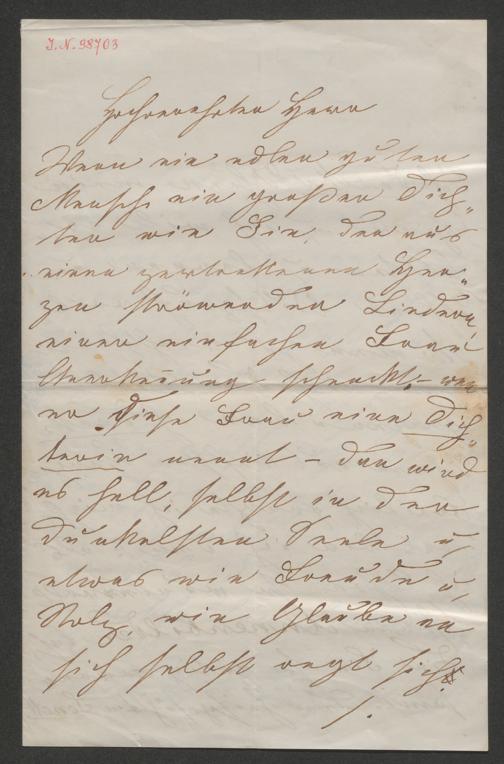 I.N. 98703
Hochverehrter Herr
Wenn ein edler guter
Mensch ein großer Dich„
ter wie Sie, den aus
einem zertretenen Her„
zen strömenden Liedern,
einer einfachen Frau
Anerkennung schenkt, – wen
er diese Frau eine Dich„
terin nennt – dan wird
es hell, selbst in der
dunkelsten Seele u,
etwas wie Freude u,
Stolz, wie Glaube an
sich selbst regt sich.
/.